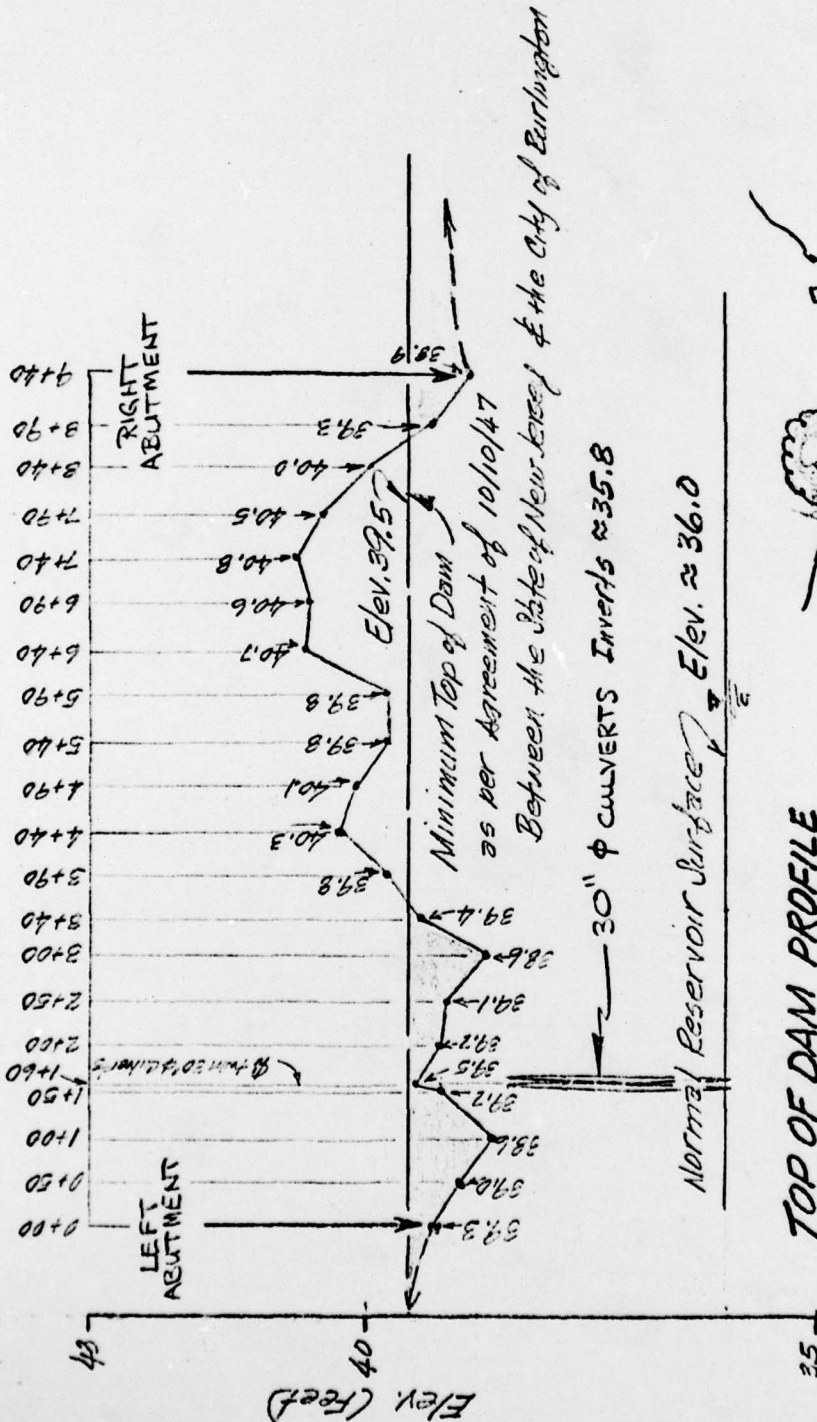 0+00
0+50
1+00
1+50
1+60
2+00
2+50
3+00
3+40
3+90
4+40
4+90
5+40
5+90
6+40
6+90
7+40
7+90
8+40
8+90
9+40
LEFT
ABUTMENT
RIGHT
ABUTMENT
43
40
35
Elev. (Feet)
39.3
39.0
38.6
39.2
39.5
39.2
39.1
38.6
39.4
39.8
40.3
40.1
39.8
39.8
40.7
40.6
40.8
40.5
40.0
39.3
38.9
Elev. 39.5
Minimum Top of Dam
as per Agreement of 10/10/47
Between the State of New Jersey & the City of Burlington
30" ϕ CULVERTS Inverts ≈35.8
Normal Reservoir Surface
Elev. ≈ 36.0
TOP OF DAM PROFILE